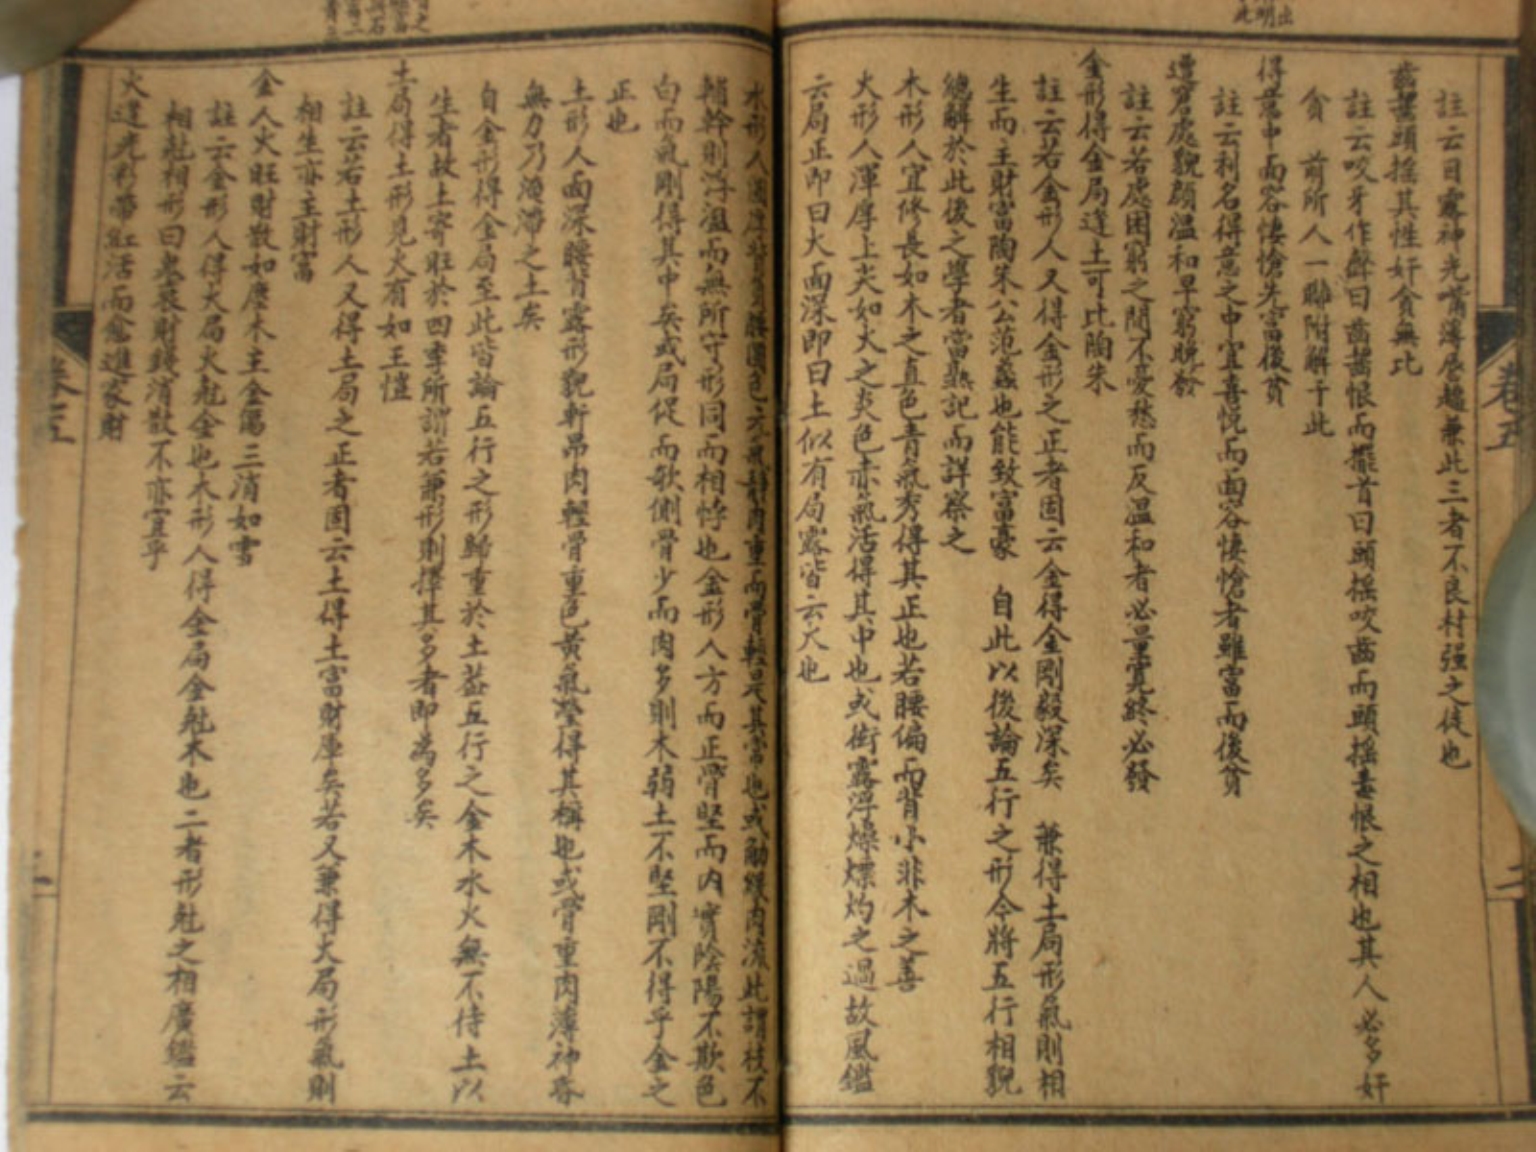 註云目露神光嘴薄唇趫兼此三者不良村强之徒也
齒齧頭摇其性奸貪無比
註云咬牙作聲曰齒齧恨而擺首曰頭摇咬齒而頭摇毒恨之相也其人必多奸
貪　前所人一聯附解于此
得意中面容悽愴先富後貧
註云利名得意之中宜喜悦而面容悽愴者雖富而後貧
遭窘處貌顔溫和早窮晩發
註云若處困窮之間不憂愁而反溫和者必量寬終必發
金形得金局逢土可比陶朱
註云若金形人又得金形之正者固云金得金剛毅深矣　兼得土局形氣則相
生而主財富陶朱公范蠡也能致富豪　自此以後論五行之形今將五行相貌
總解於此後之學者當熟記而詳察之
木形人宜修長如木之直色青氣秀得其正也若腰偏而背小非木之善
火形人渾厚上尖如火之炎色赤氣活得其中也或街露浮燥煙灼之過故風鑑
云局正即曰火面深即曰土似有局露皆云火也
水形人圓厚背負腰圓色玄氣靜肉重而骨輕是其常也或觔緩肉流此謂枝不
輔幹則浮溫而無所守形同而相悖也金形人方而正骨堅而内實陰陽不欺色
白而氣剛得其中矣或局促而欹側骨少而肉多則木弱土不堅剛不得乎金之
正也
土形人面深腰背露形貌軒昻肉輕骨重色黃氣瑩得其稱也或骨重肉薄神昏
無力乃滯之土矣
自金形得金局至此皆論五行之形歸重於土盖五行之金木水火無不待土以
生者故土寄旺於四季所謂若兼形則擇其多者即為多矣
土局得土形見火有如王愷
註云若土形人又得土局之正者固云土得土富財庫矣若又兼得火局形氣則
相生亦主財富
金人火旺財散如塵木主金傷三消如雪
註云金形人得火局火尅金也木形人得金局金尅木也二者形尅之相廣鑑云
相尅相形曰悲哀財錢消散不亦宜乎
火逢光彩帶紅活而愈進家財
卷五
二
卷五